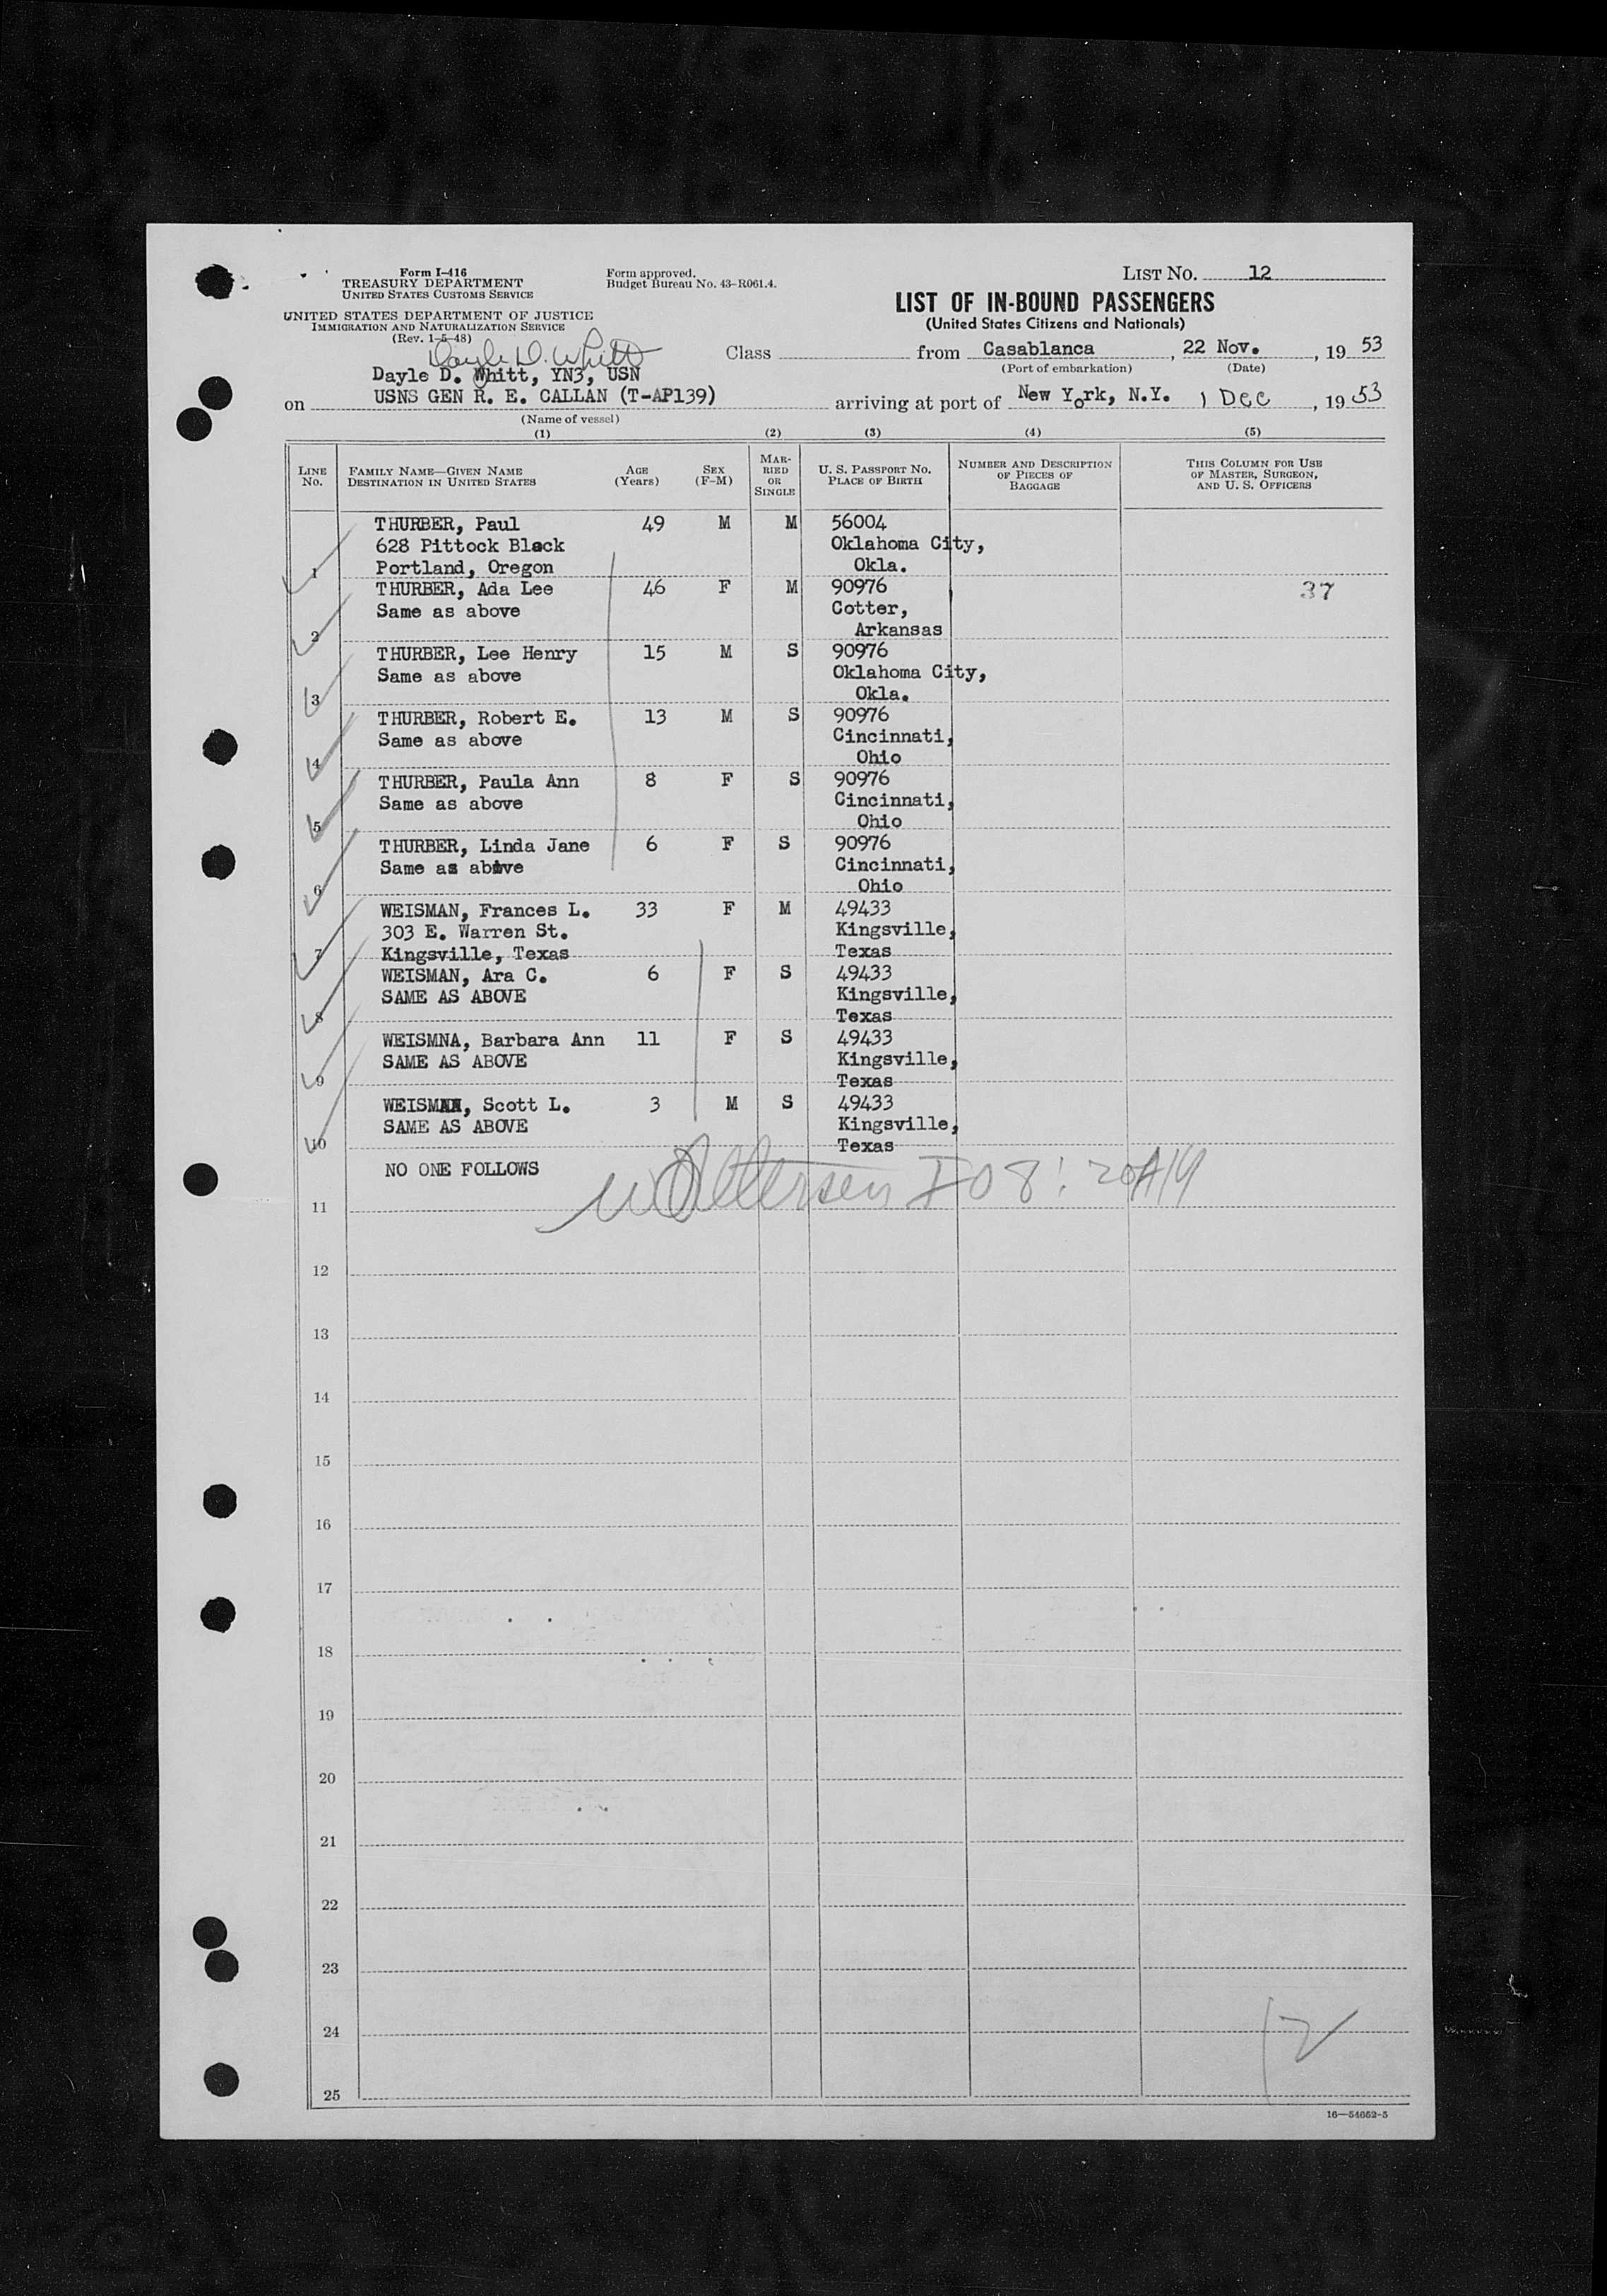 Form I-416
TREASURY DEPARTMENT
UNITED STATES CUSTOMS SERVICE
UNITED STATES DEPARTMENT OF JUSTICE
IMMIGRATION AND NATURALIZATION SERVICE
(Rev. 1-5-48)
Form approved.
Budget Bureau No. 43-R061.4.
LIST NO. 12
LIST OF IN-BOUND PASSENGERS
(United States Citizens and Nationals)
Dayle D. Whitt
Dayle D. Whitt, YN3, USN
Class from Casablanca, 22 Nov., 1953
(Port of embarkation) (Date)
on USNS GEN R. E. CALLAN (T-AP139) arriving at port of New York, N.Y. 1 Dec, 1953
(Name of vessel)
(1) (2) (3) (4) (5)
LINE No. FAMILY NAME—GIVEN NAME DESTINATION IN UNITED STATES AGE (Years) SEX (F-M) MARRIED OR SINGLE U. S. PASSPORT NO. PLACE OF BIRTH NUMBER AND DESCRIPTION OF PIECES OF BAGGAGE THIS COLUMN FOR USE OF MASTER, SURGEON, AND U. S. OFFICERS
THURBER, Paul 49 M M 56004
628 Pittock Block Oklahoma City,
1 Portland, Oregon Okla.
THURBER, Ada Lee 46 F M 90976 37
Same as above Cotter,
2 Arkansas
THURBER, Lee Henry 15 M S 90976
Same as above Oklahoma City,
3 Okla.
THURBER, Robert E. 13 M S 90976
Same as above Cincinnati,
4 Ohio
THURBER, Paula Ann 8 F S 90976
Same as above Cincinnati,
5 Ohio
THURBER, Linda Jane 6 F S 90976
Same as above Cincinnati,
6 Ohio
WEISMAN, Frances L. 33 F M 49433
303 E. Warren St. Kingsville,
7 Kingsville, Texas Texas
WEISMAN, Ara C. 6 F S 49433
SAME AS ABOVE Kingsville,
8 Texas
WEISMNA, Barbara Ann 11 F S 49433
SAME AS ABOVE Kingsville,
9 Texas
WEISMAN, Scott L. 3 M S 49433
SAME AS ABOVE Kingsville,
10 Texas
NO ONE FOLLOWS
11
12
13
14
15
16
17
18
19
20
21
22
23
24
25
12
16—54652-5